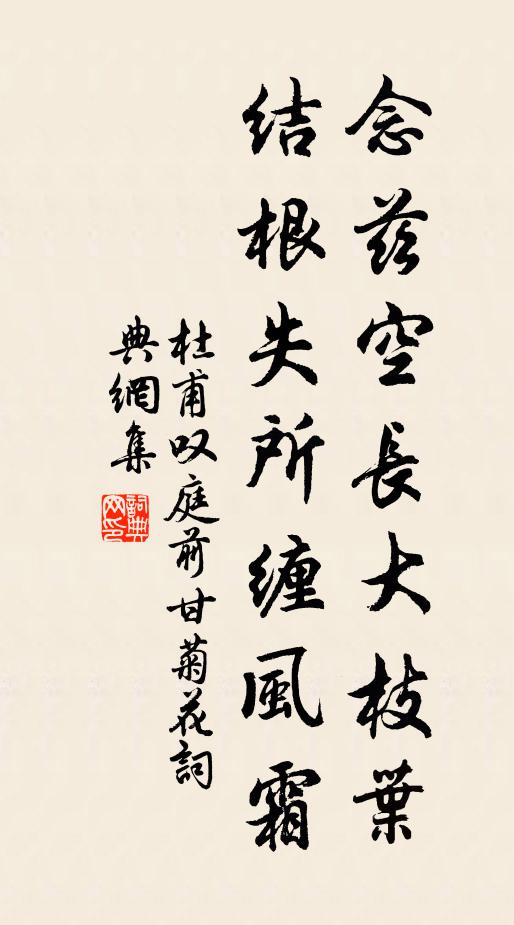 念茲空長大枝葉
结根失所缠風霜
杜甫叹庭前甘菊花詞
典網集
詞典
网印